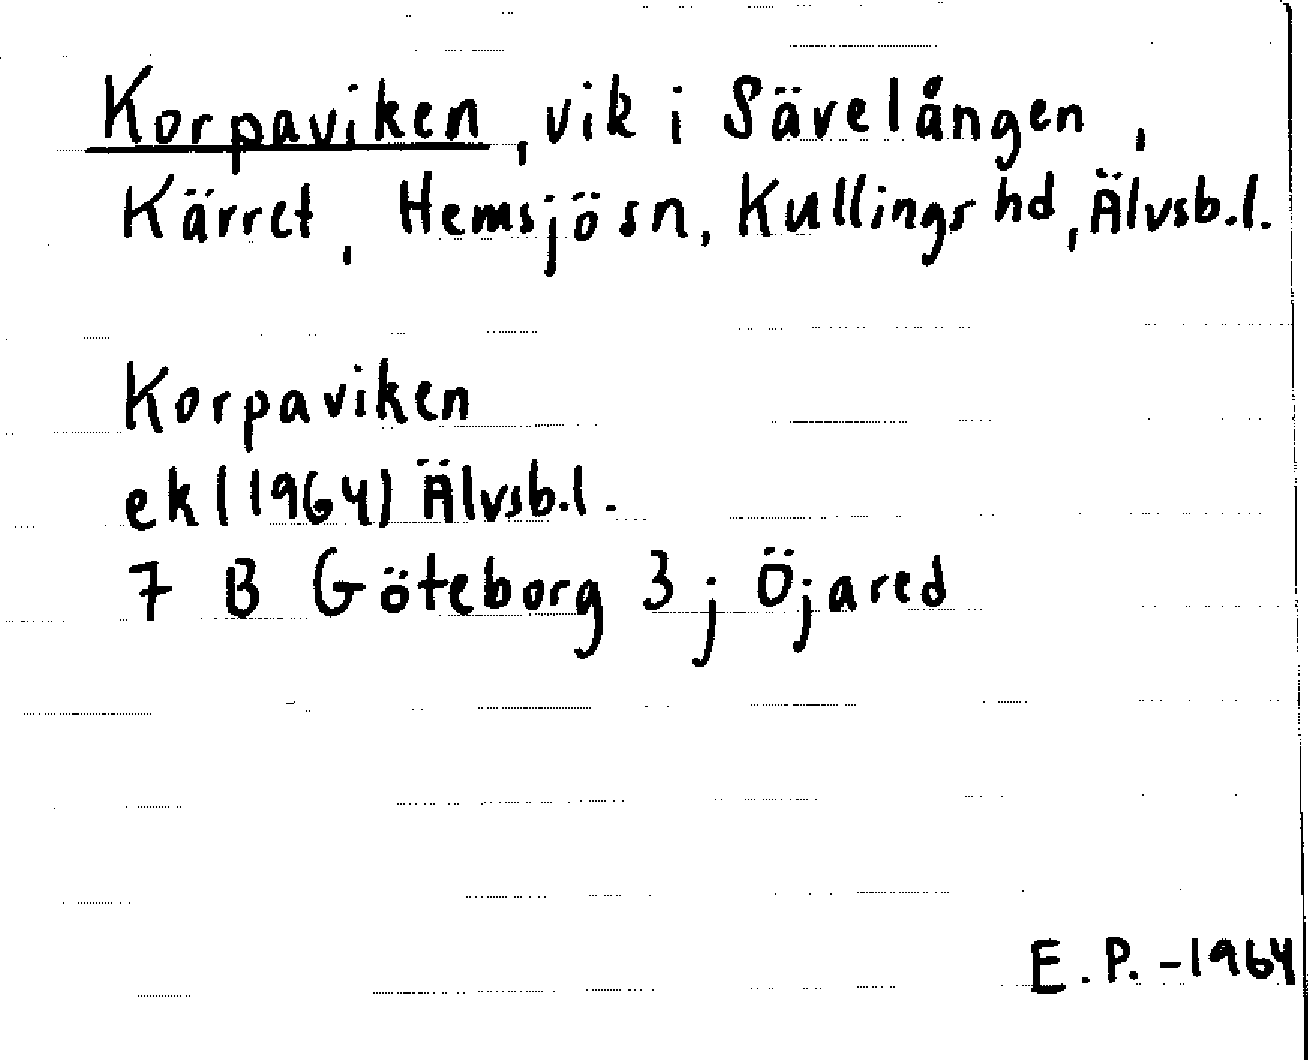 Korpaviken, vik i Sävelången,
Kärret, Hemsjö sn, Kullings hd, Älvsb.l.
Korpaviken
ek (1964) Älvsb.l.
7 B Göteborg 3 j Öjared
E.P. - 1964